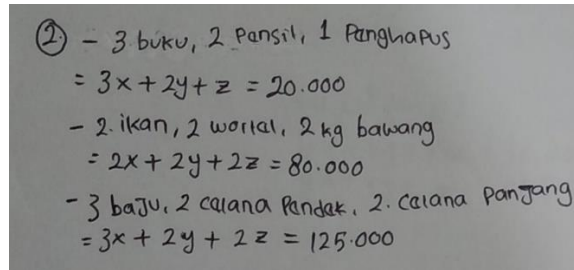 ② - 3 buku, 2 Pansil, 1 Panghapus
= 3x + 2y + z = 20.000
- 2. ikan, 2 wortal, 2 kg bawang
= 2x + 2y + 2z = 80.000
- 3 baju, 2 calana Pandak, 2. calana Panjang
= 3x + 2y + 2z = 125.000